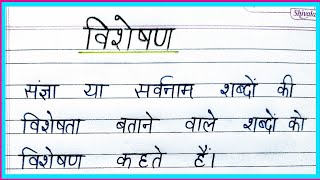 Shivalal
विशेषण
संज्ञा या सर्वनाम शब्दों की
विशेषता बताने वाले शब्दों को
विशेषण कहते हैं।